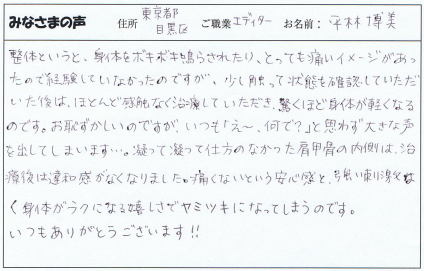 みなさまの声 住所 東京都目黒区 ご職業 エディター お名前: 平林博美
整体というと、身体をボキボキ鳴らされたり、とっても痛いイメージがあっ
たので経験していなかったのですが、少し触って状態を確認していただ
いた後は、ほとんど感触なく治療していただき、驚くほど身体が軽くなる
のです。お恥ずかしいのですが、いつも「え〜、何で?」と思わず大きな声
を出してしまいます…。凝って凝って仕方のなかった肩甲骨の内側は、治
療後は違和感がなくなりました。痛くないという安心感と、弱い刺激な
く身体がラクになる嬉しさでヤミツキになってしまうのです。
いつもありがとうございます!!